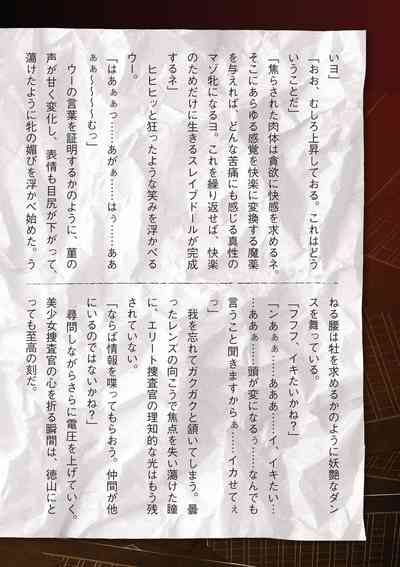 いヨ」
「おお、むしろ上昇しておる。これはどう
いうことだ」
「焦らされた肉体は貪欲に快感を求めるネ。
そこにあらゆる感覚を快楽に変換する魔薬
を与えれば、どんな苦痛にも感じる真性の
マゾ牝になるヨ。これを繰り返せば、快楽
のためだけに生きるスレイブドールが完成
するネ」
　ヒヒヒッと狂ったような笑みを浮かべる
ウー。
「はあぁぁっ……あがぁ……はぅ……ああ
ぁぁ～～～～むっ」
　ウーの言葉を証明するかのように、菫の
声が甘く変化し、表情も目尻が下がって、
蕩けたように牝の媚びを浮かべ始めた。う
ねる腰は牡を求めるかのように妖艶なダン
スを舞っている。
「フフフ、イキたいかね？」
「ンあぁぁ……あああ……イ、イキたい…
…ああぁ……頭が変になるぅ……なんでも
言うこと聞きますからぁ……イカせてぇ
っ」
　我を忘れてガクガクと頷いてしまう。曇
ったレンズの向こうで焦点を失い蕩けた瞳
に、エリート捜査官の理知的な光はもう残
されていない。
「ならば情報を喋ってもらおう。仲間が他
にいるのではないかね？」
　尋問しながらさらに電圧を上げていく。
美少女捜査官の心を折る瞬間は、徳山にと
っても至高の刻だ。